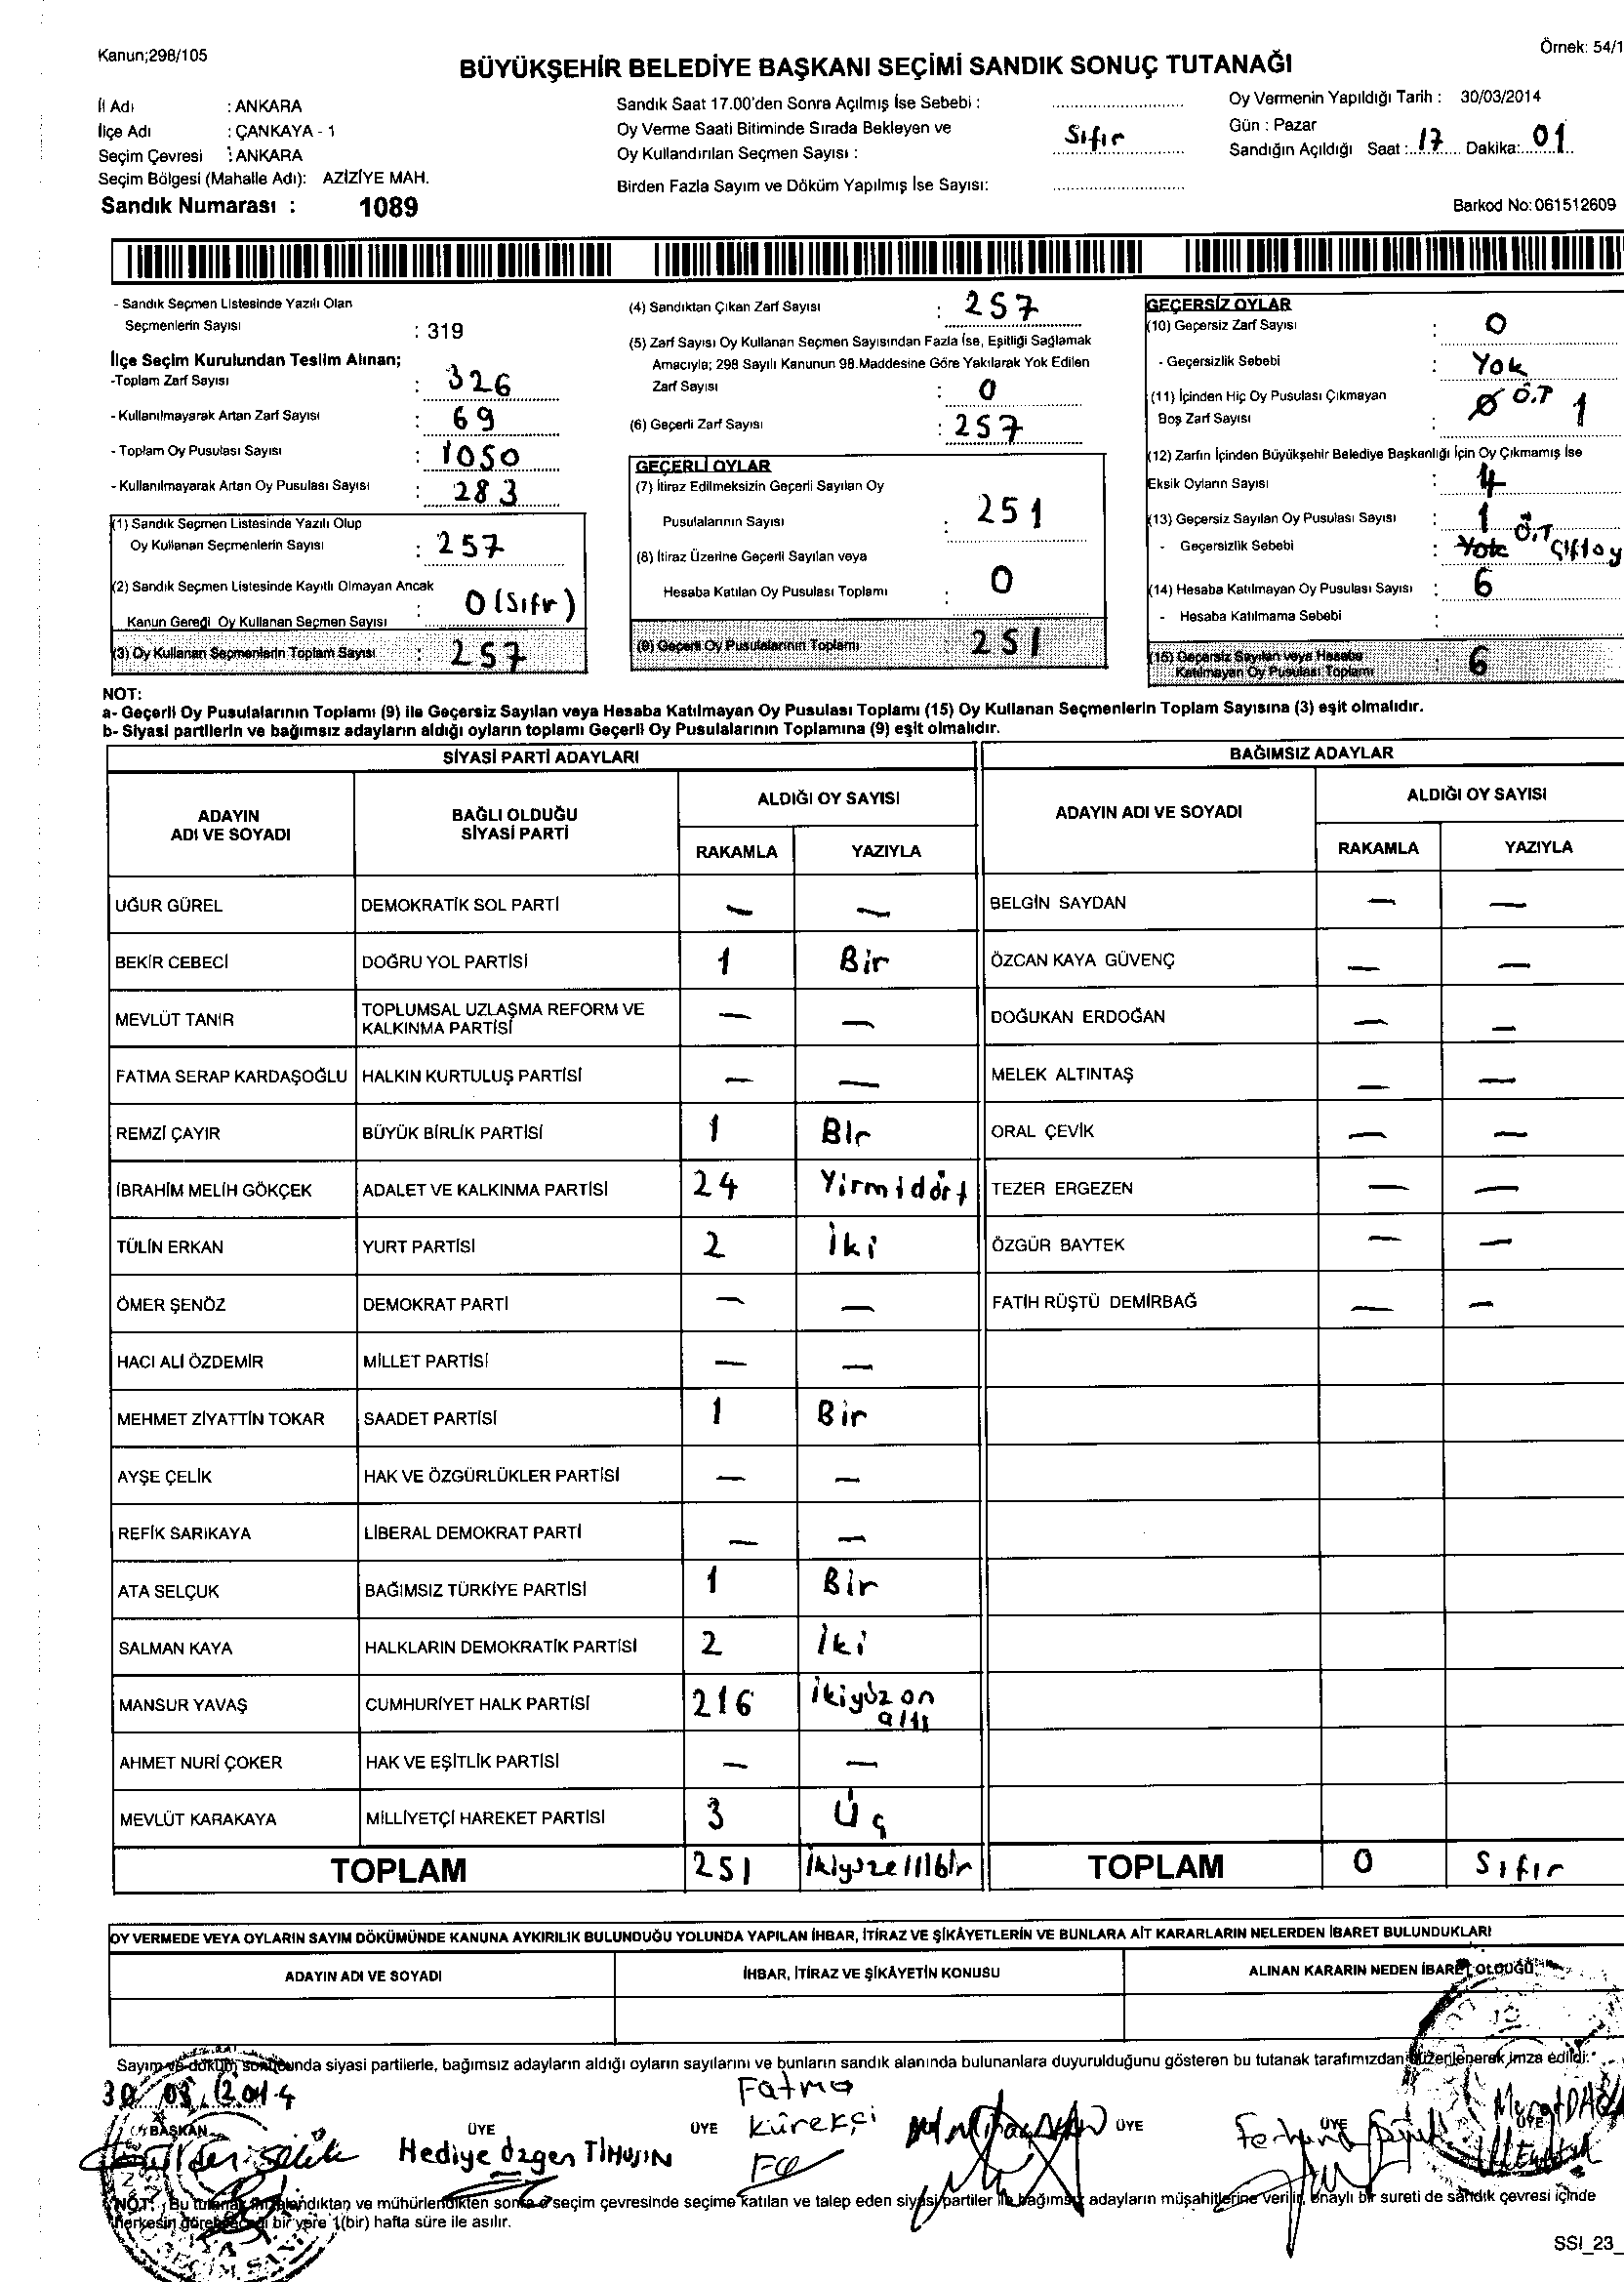 Kanun;298/105
Örnek: 54/1
BÜYÜKŞEHİR BELEDİYE BAŞKANI SEÇİMİ SANDIK SONUÇ TUTANAĞI
İl Adı : ANKARA
İlçe Adı : ÇANKAYA - 1
Seçim Çevresi : ANKARA
Seçim Bölgesi (Mahalle Adı): AZİZİYE MAH.
Sandık Numarası : 1089
Sandık Saat 17.00'den Sonra Açılmış İse Sebebi :
Oy Verme Saati Bitiminde Sırada Bekleyen ve
Oy Kullandırılan Seçmen Sayısı : Sıfır
Birden Fazla Sayım ve Döküm Yapılmış İse Sayısı:
Oy Vermenin Yapıldığı Tarih : 30/03/2014
Gün : Pazar
Sandığın Açıldığı Saat : 17 Dakika: 01
Barkod No: 061512609
- Sandık Seçmen Listesinde Yazılı Olan
Seçmenlerin Sayısı : 319
İlçe Seçim Kurulundan Teslim Alınan;
-Toplam Zarf Sayısı : 326
- Kullanılmayarak Artan Zarf Sayısı : 69
- Toplam Oy Pusulası Sayısı : 1050
- Kullanılmayarak Artan Oy Pusulası Sayısı : 283
(1) Sandık Seçmen Listesinde Yazılı Olup
Oy Kullanan Seçmenlerin Sayısı : 257
(2) Sandık Seçmen Listesinde Kayıtlı Olmayan Ancak
Kanun Gereği Oy Kullanan Seçmen Sayısı : 0 (Sıfır)
(3) Oy Kullanan Seçmenlerin Toplam Sayısı : 257
(4) Sandıktan Çıkan Zarf Sayısı : 257
(5) Zarf Sayısı Oy Kullanan Seçmen Sayısından Fazla İse, Eşitliği Sağlamak
Amacıyla; 298 Sayılı Kanunun 98.Maddesine Göre Yakılarak Yok Edilen
Zarf Sayısı : 0
(6) Geçerli Zarf Sayısı : 257
GEÇERLİ OYLAR
(7) İtiraz Edilmeksizin Geçerli Sayılan Oy
Pusulalarının Sayısı : 251
(8) İtiraz Üzerine Geçerli Sayılan veya
Hesaba Katılan Oy Pusulası Toplamı : 0
(9) Geçerli Oy Pusulalarının Toplamı : 251
GEÇERSİZ OYLAR
(10) Geçersiz Zarf Sayısı : 0
- Geçersizlik Sebebi : Yok
(11) İçinden Hiç Oy Pusulası Çıkmayan
Boş Zarf Sayısı : 0 Ö.T 1
(12) Zarfın İçinden Büyükşehir Belediye Başkanlığı İçin Oy Çıkmamış İse
Eksik Oyların Sayısı : 4
(13) Geçersiz Sayılan Oy Pusulası Sayısı : 1
- Geçersizlik Sebebi : Yok Ö.T Çift oy
(14) Hesaba Katılmayan Oy Pusulası Sayısı : 6
- Hesaba Katılmama Sebebi :
(15) Geçersiz Sayılan veya Hesaba
Katılmayan Oy Pusulası Toplamı : 6
NOT:
a- Geçerli Oy Pusulalarının Toplamı (9) ile Geçersiz Sayılan veya Hesaba Katılmayan Oy Pusulası Toplamı (15) Oy Kullanan Seçmenlerin Toplam Sayısına (3) eşit olmalıdır.
b- Siyasi partilerin ve bağımsız adayların aldığı oyların toplamı Geçerli Oy Pusulalarının Toplamına (9) eşit olmalıdır.
SİYASİ PARTİ ADAYLARI BAĞIMSIZ ADAYLAR
ADAYIN ADI VE SOYADI BAĞLI OLDUĞU SİYASİ PARTİ ALDIĞI OY SAYISI ADAYIN ADI VE SOYADI ALDIĞI OY SAYISI
RAKAMLA YAZIYLA RAKAMLA YAZIYLA
UĞUR GÜREL DEMOKRATİK SOL PARTİ — — BELGİN SAYDAN — —
BEKİR CEBECİ DOĞRU YOL PARTİSİ 1 Bir ÖZCAN KAYA GÜVENÇ — —
MEVLÜT TANIR TOPLUMSAL UZLAŞMA REFORM VE KALKINMA PARTİSİ — — DOĞUKAN ERDOĞAN — —
FATMA SERAP KARDAŞOĞLU HALKIN KURTULUŞ PARTİSİ — — MELEK ALTINTAŞ — —
REMZİ ÇAYIR BÜYÜK BİRLİK PARTİSİ 1 BIr ORAL ÇEVİK — —
İBRAHİM MELİH GÖKÇEK ADALET VE KALKINMA PARTİSİ 24 Yirmidört TEZER ERGEZEN — —
TÜLİN ERKAN YURT PARTİSİ 2 İki ÖZGÜR BAYTEK — —
ÖMER ŞENÖZ DEMOKRAT PARTİ — — FATİH RÜŞTÜ DEMİRBAĞ — —
HACI ALİ ÖZDEMİR MİLLET PARTİSİ — —
MEHMET ZİYATTİN TOKAR SAADET PARTİSİ 1 Bir
AYŞE ÇELİK HAK VE ÖZGÜRLÜKLER PARTİSİ — —
REFİK SARIKAYA LİBERAL DEMOKRAT PARTİ — —
ATA SELÇUK BAĞIMSIZ TÜRKİYE PARTİSİ 1 Bir
SALMAN KAYA HALKLARIN DEMOKRATİK PARTİSİ 2 İki
MANSUR YAVAŞ CUMHURİYET HALK PARTİSİ 216 ikiyüz on altı
AHMET NURİ ÇOKER HAK VE EŞİTLİK PARTİSİ — —
MEVLÜT KARAKAYA MİLLİYETÇİ HAREKET PARTİSİ 3 Üç
TOPLAM 251 ikiyüzellibir TOPLAM 0 Sıfır
OY VERMEDE VEYA OYLARIN SAYIM DÖKÜMÜNDE KANUNA AYKIRILIK BULUNDUĞU YOLUNDA YAPILAN İHBAR, İTİRAZ VE ŞİKÂYETLERİN VE BUNLARA AİT KARARLARIN NELERDEN İBARET BULUNDUKLARI
ADAYIN ADI VE SOYADI İHBAR, İTİRAZ VE ŞİKÂYETİN KONUSU ALINAN KARARIN NEDEN İBARET OLDUĞU
Sayım ve döküm sonucunda siyasi partilerle, bağımsız adayların aldığı oyların sayılarını ve bunların sandık alanında bulunanlara duyurulduğunu gösteren bu tutanak tarafımızdan düzenlenerek imza edildi.
30.03.2014
BAŞKAN ÜYE ÜYE ÜYE ÜYE ÜYE
Hediye Özgen
Fatma
Kürekçi
NOT: Bu tutanak imzalandıktan ve mühürlendikten sonra o seçim çevresinde seçime katılan ve talep eden siyasi partiler ile bağımsız adayların müşahitlerine verilir, onaylı bir sureti de sandık çevresi içinde
herkesin görebileceği bir yere 1(bir) hafta süre ile asılır.
SSI_23_